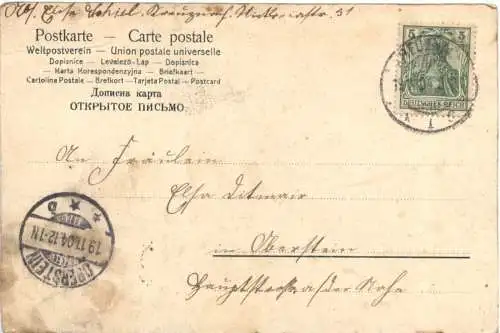 Abs. Elsa Bechtel, Kreuznach, Viktoriastr. 31
Postkarte — Carte postale
Weltpostverein — Union postale universelle
Dopisnice — Levelező-Lap — Dopisnica
Karta Korespondenzyjna — Briefkaart —
Cartolina Postale — Brefkort — Tarjeta Postal — Postcard
Дописна карта
ОТКРЫТОЕ ПИСЬМО
5 5
DEUTSCHES REICH
An Fräulein
Elsa Ditmair
in Oberstein
Hauptstrasse a/der Nahe
D
19.11.04.12-1N
OBERSTEIN